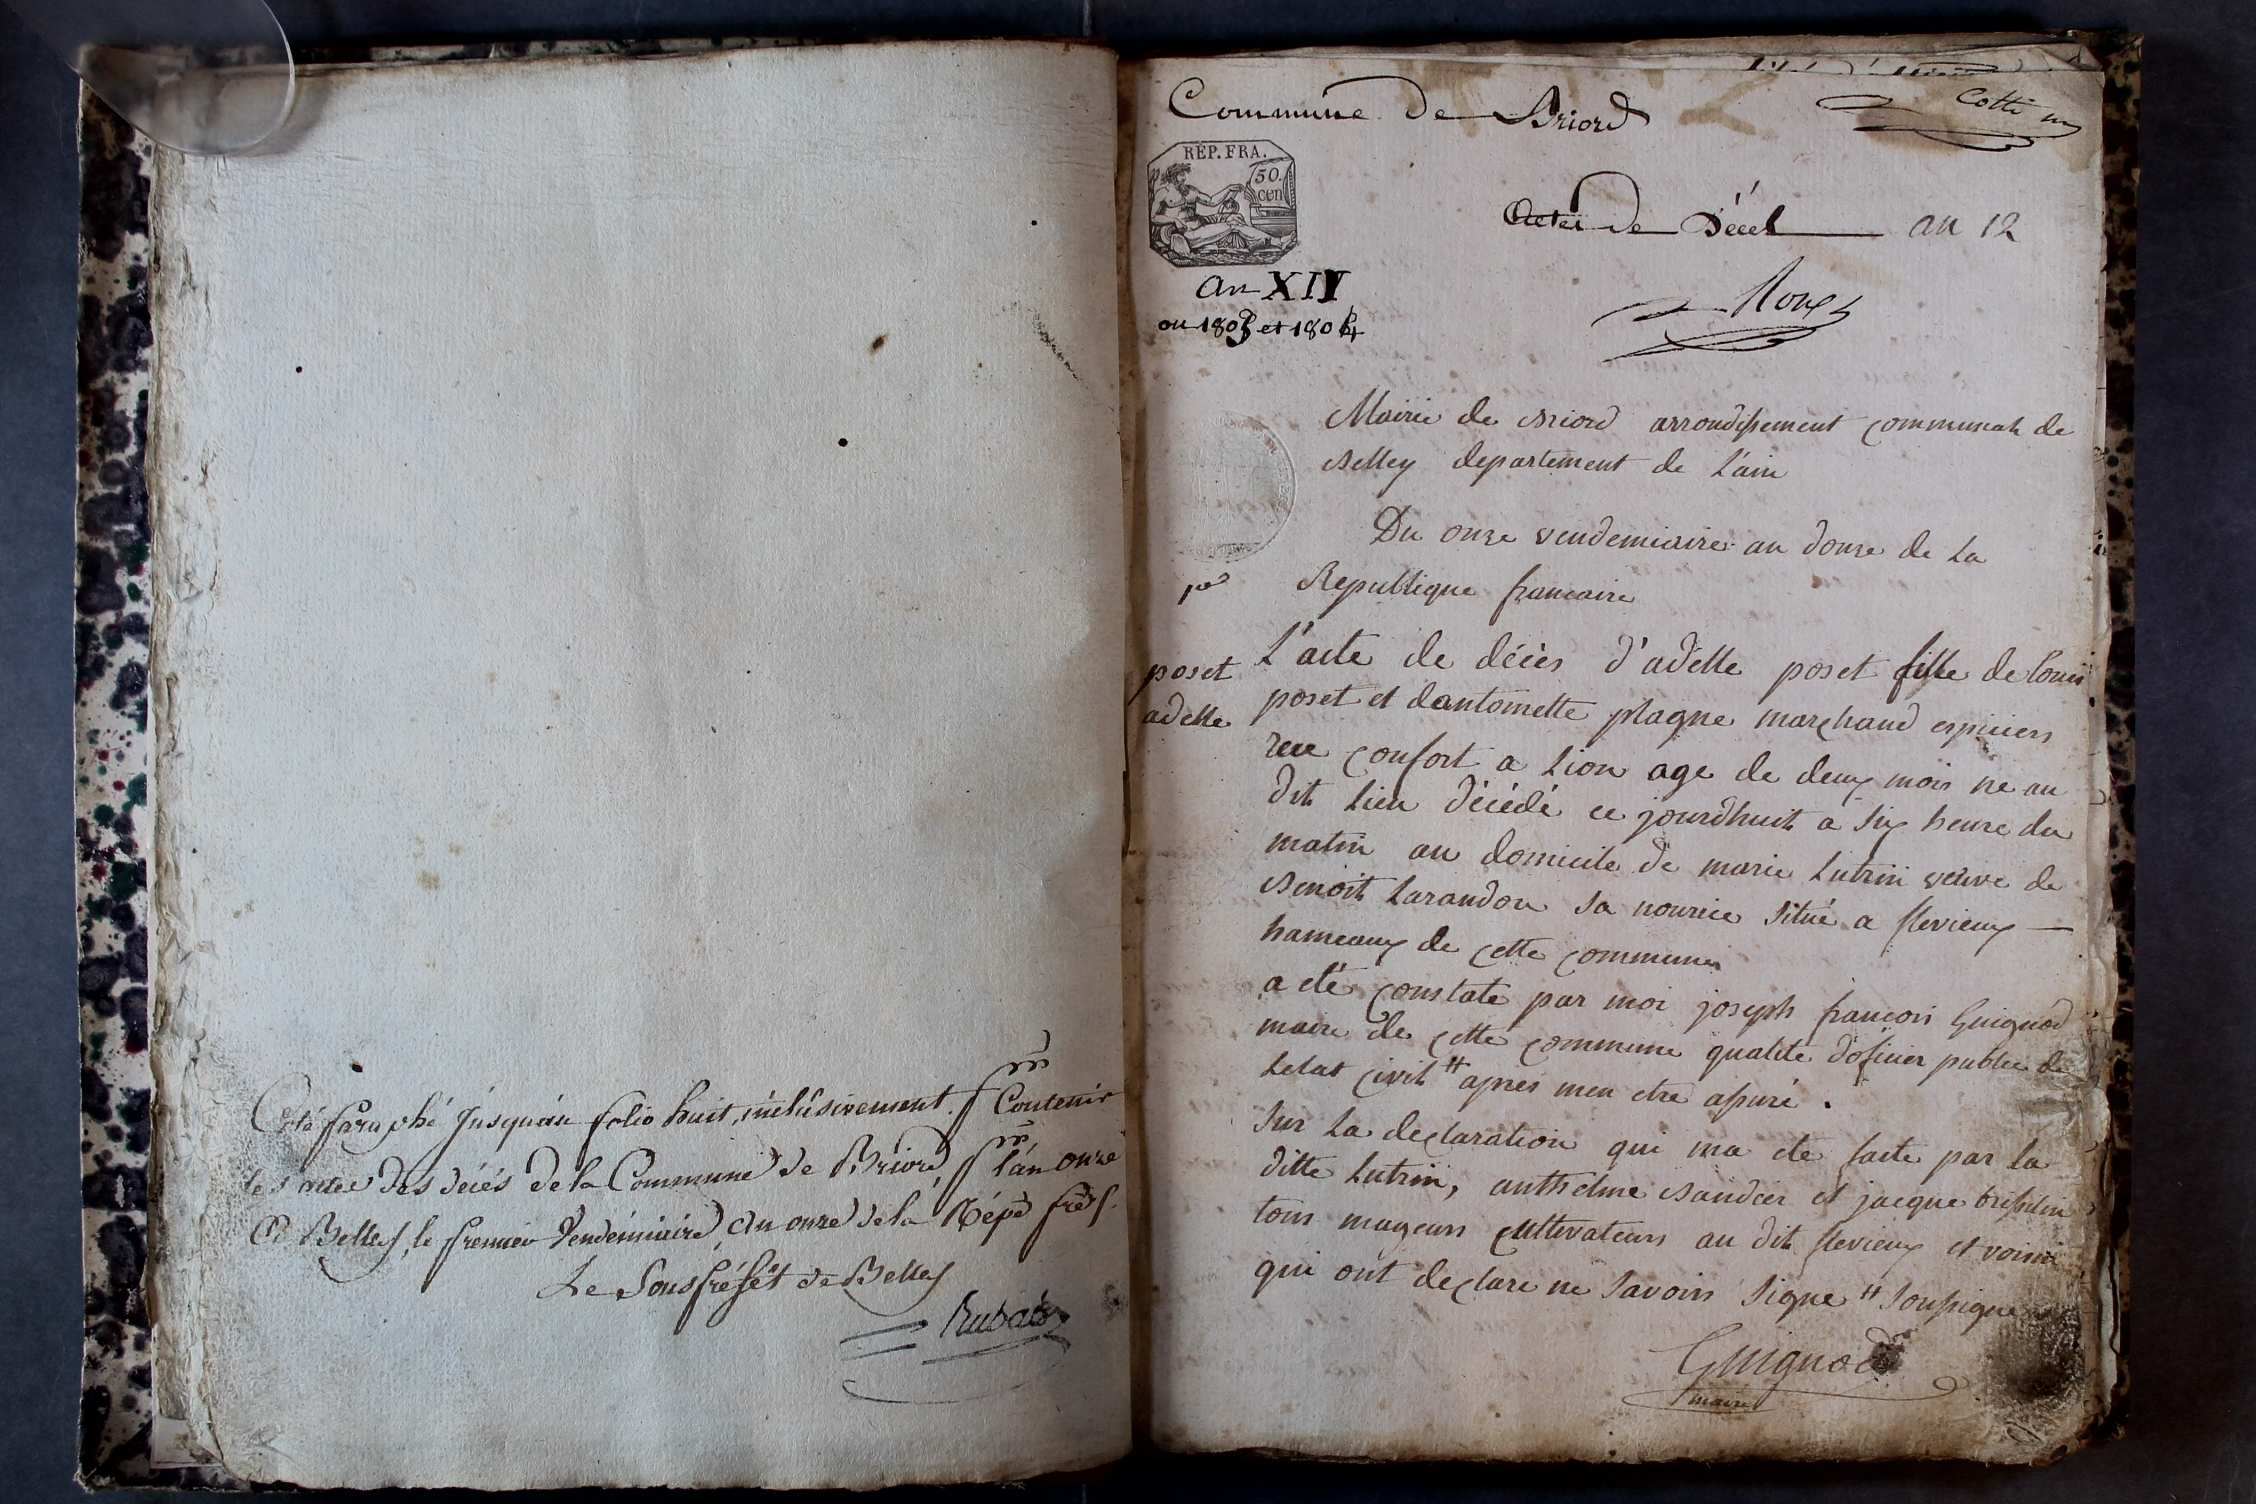 Coté paraphé jusqu'au folio huit, inclusivement. pr Contenir
les actes des décés de la Commune de Briord, pr l'an onze
A Belley, le premier Vendémiaire, an onze de la Répe frse.
Le Sous préfet de Belley
Rubat
Commune de Briord
RÉP. FRA.
50.
cen
Actes de Décel an 12
an XII
ou 1803 et 1804
Roux
Mairie de Briord arrondissement communal de
Belley departement de L'ain
Du onze vendemiaire an douze de La
1er Republique francaise
poset
adelle
L'acte de décès d'adelle poset fille de louis
poset et dantoinette plagne marchand espiciers
rue confort a Lion age de deux mois ne au
dit Lieu décédé ce jourdhuit a six heure du
matin au domicile de marie Lutrin veuve de
Benoit Larandon sa nourice situé a flevieux
hameaux de cette commune
a été constaté par moi joseph françois Guignod
maire de cette commune qualité d'oficier public de
Letat civil # apres men etre assuré.
Sur La declaration qui ma ete faite par La
ditte Lutrin, anthelme et jacque
tous mageurs cultivateurs au dit flevieux et voisin
qui ont declare ne savoirs signe # soussigne
Guignod
maire